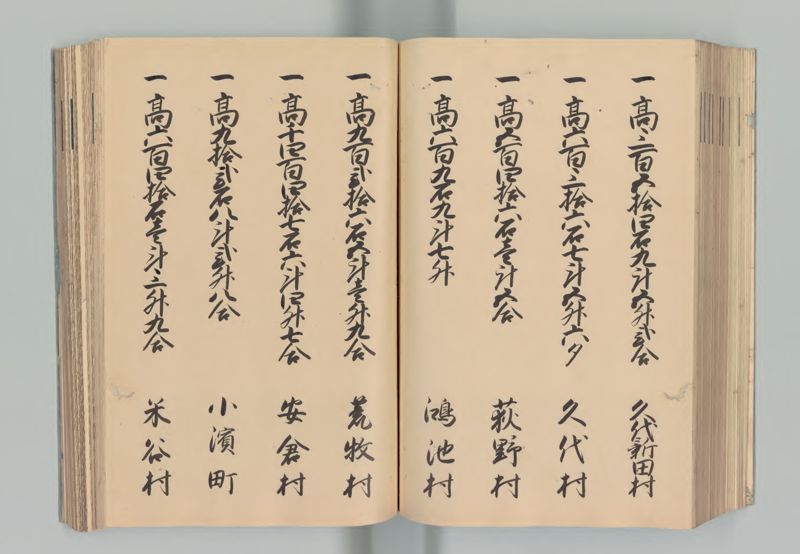 一高三百五拾四石九斗五升弐合 久代新田村
一高六百三拾六石七斗五升六夕 久代村
一高五百四拾六石壱斗五合 荻野村
一高六百九石九斗七升 鴻池村
一高九百弐拾六石五斗壱升九合 荒牧村
一高千四百四拾七石六斗四升七合 安倉村
一高九拾弐石八斗弐升八合 小濱町
一高六百四拾石壱斗三升九合 米谷村